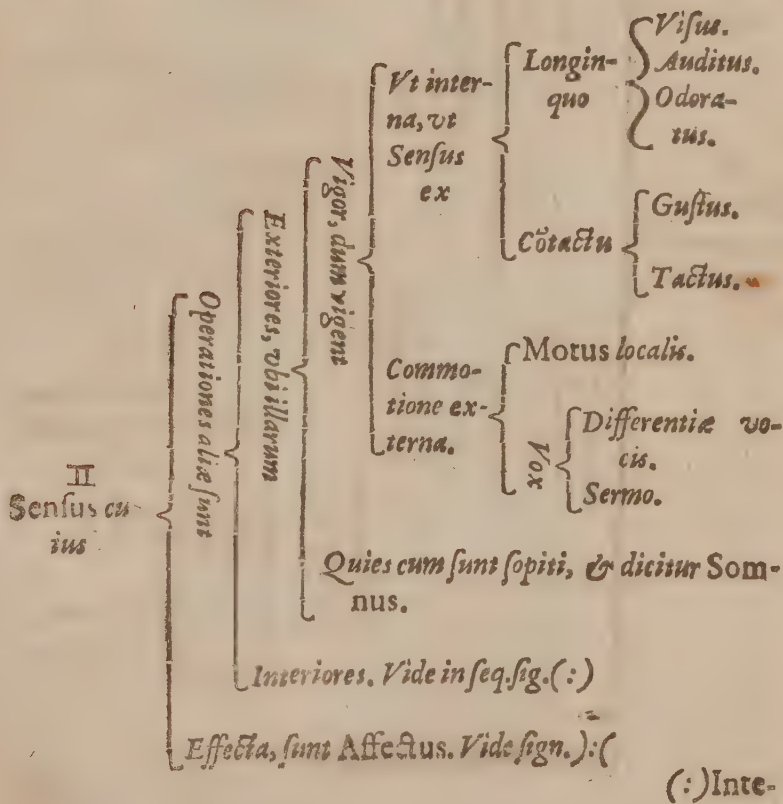 II
Senſus cu
ius
Operationes aliæ ſunt
Exteriores, vbi illarum
Vigor, dum vigent
Vt inter-
na, vt
Senſus
ex
Longin-
quo
Viſus.
Auditus.
Odora-
tus.
Cõtactu
Guſtus.
Tactus.
Commo-
tione ex-
terna.
Motus localis.
Vox
Differentiæ vo-
cis.
Sermo.
Quies cum ſunt ſopiti, & dicitur Som-
nus.
Interiores. Vide in ſeq. ſig. (:)
Effecta, ſunt Affectus. Vide ſign. ):(
(:) Inte-